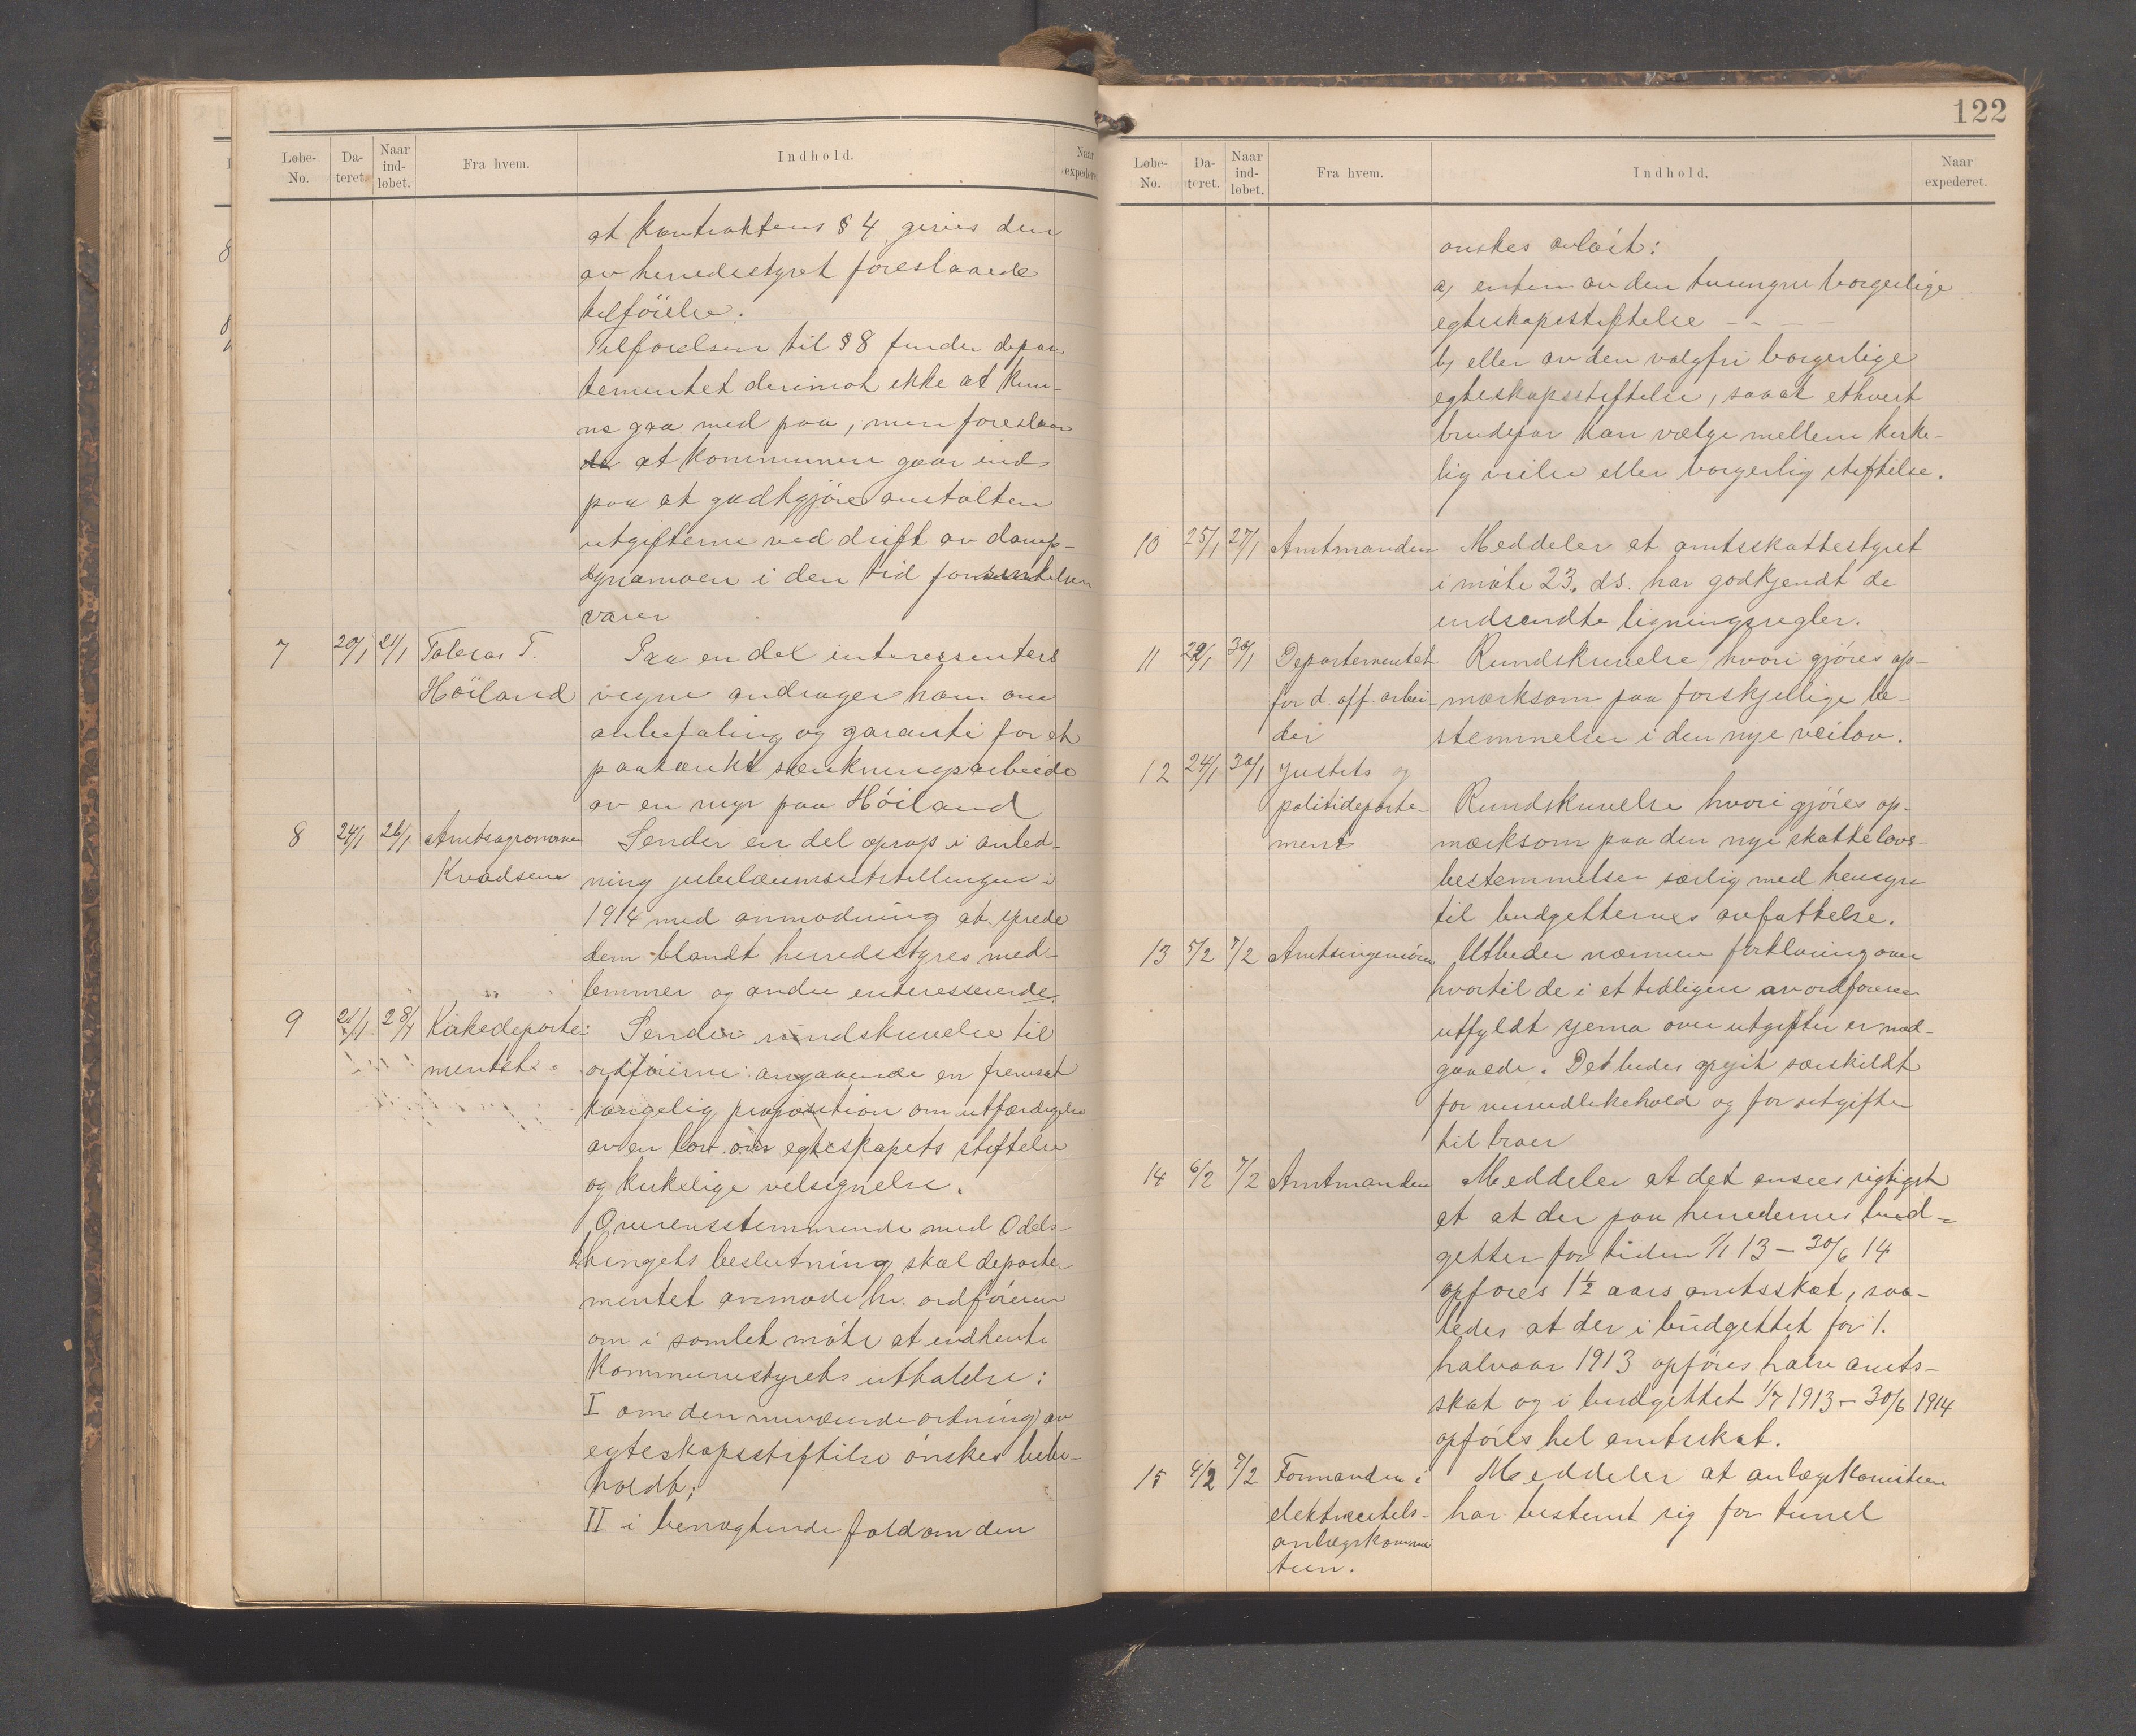 Løbe-No. Da-teret. Naar ind-løbet. Fra hvem. Indhold. Naar expederet
at kontraktens § 4 gives den
av herredsstyret foreslaaede
tilföielse.
Tilföielsen til § 8 finder depar-
tementet derimot ikke at kun-
ne gaa med paa, men foreslaar
at kommunen gaar ind
paa at godtgjøre anstalten
utgifterne ved drift av damp-
dynamoen i den tid
varer
7 20/1 21/1 Tolleras T. Paa en del interessenters
Höiland vegne andrager han om
anbefaling og garanti for et
paatænkt sænkningsarbeide
av en myr paa Höiland
8 24/1 26/1 Amtsagronomen Sender en del oprop i anled-
Kvadsen ning jubilæumsutstillingen i
1914 med anmodning at sprede
dem blandt herredsstyres med-
lemmer og andre interesserede.
9 21/1 28/1 Kirkedeparte- Sender rundskrivelse til
mentet ordförerne angaaende en fremsat
kongelig proposition om utfærdigelse
av en lov om egteskapets stiftelse
og kirkelige velsignelse.
Overensstemmende med Odels-
thingets beslutning skal departe-
mentet anmode hr. ordföreren
om i samlet möte at indhente
kommunestyrets uttalelse:
I om den nuværende ordning av
egteskapsstiftelse önskes bebe-
holdt;
II i benægtende fald om den
122
Løbe-No. Da-teret. Naar ind-løbet. Fra hvem. Indhold. Naar expederet.
önskes avløst:
a) enten av den tvungne borgerlige
egteskapsstiftelse - - - -
b) eller av den valgfri borgerlige
egteskapsstiftelse, saaat ethvert
brudepar kan vælge mellem kirke-
lig vielse eller borgerlig stiftelse.
10 25/1 27/1 Amtmanden Meddeler at amtsskattestyret
i möte 23. ds. har godkjendt de
indsendte ligningsregler.
11 29/1 30/1 Departementet Rundskrivelse hvori gjöres op-
for d. off. arbei- mærksom paa forskjellige be-
der stemmelser i den nye veilov.
12 24/1 30/1 Justits og
politideparte- Rundskrivelse hvori gjöres op-
ment mærksom paa den nye skattelovs-
bestemmelser særlig med hensyn
til budgetternes avfattelse.
13 5/2 7/2 Amtsingeniören Utbeder nærmere forklaring over
hvortil de i et tidligere av ordföreren
utfyldt sjema over utgifter er med-
gaaede. Det bedes opgit særskildt
for veivedlikehold og for utgifter
til broer
14 6/2 7/2 Amtmanden Meddeler at det ansees rigtigst
et at der paa herredernes bud-
getter for tiden 1/1 13 - 30/6 14
opföres 1½ aars amtsskat, saa-
ledes at der i budgettet for 1.
halvaar 1913 opföres halv amts-
skat og i budgettet 1/7 1913 - 30/6 1914
opföres hel amtsskat.
15 4/2 7/2 Formanden i Meddeler at anlægskomiteen
elektricitets- har bestemt sig for tunel
anlægskommi
teen.